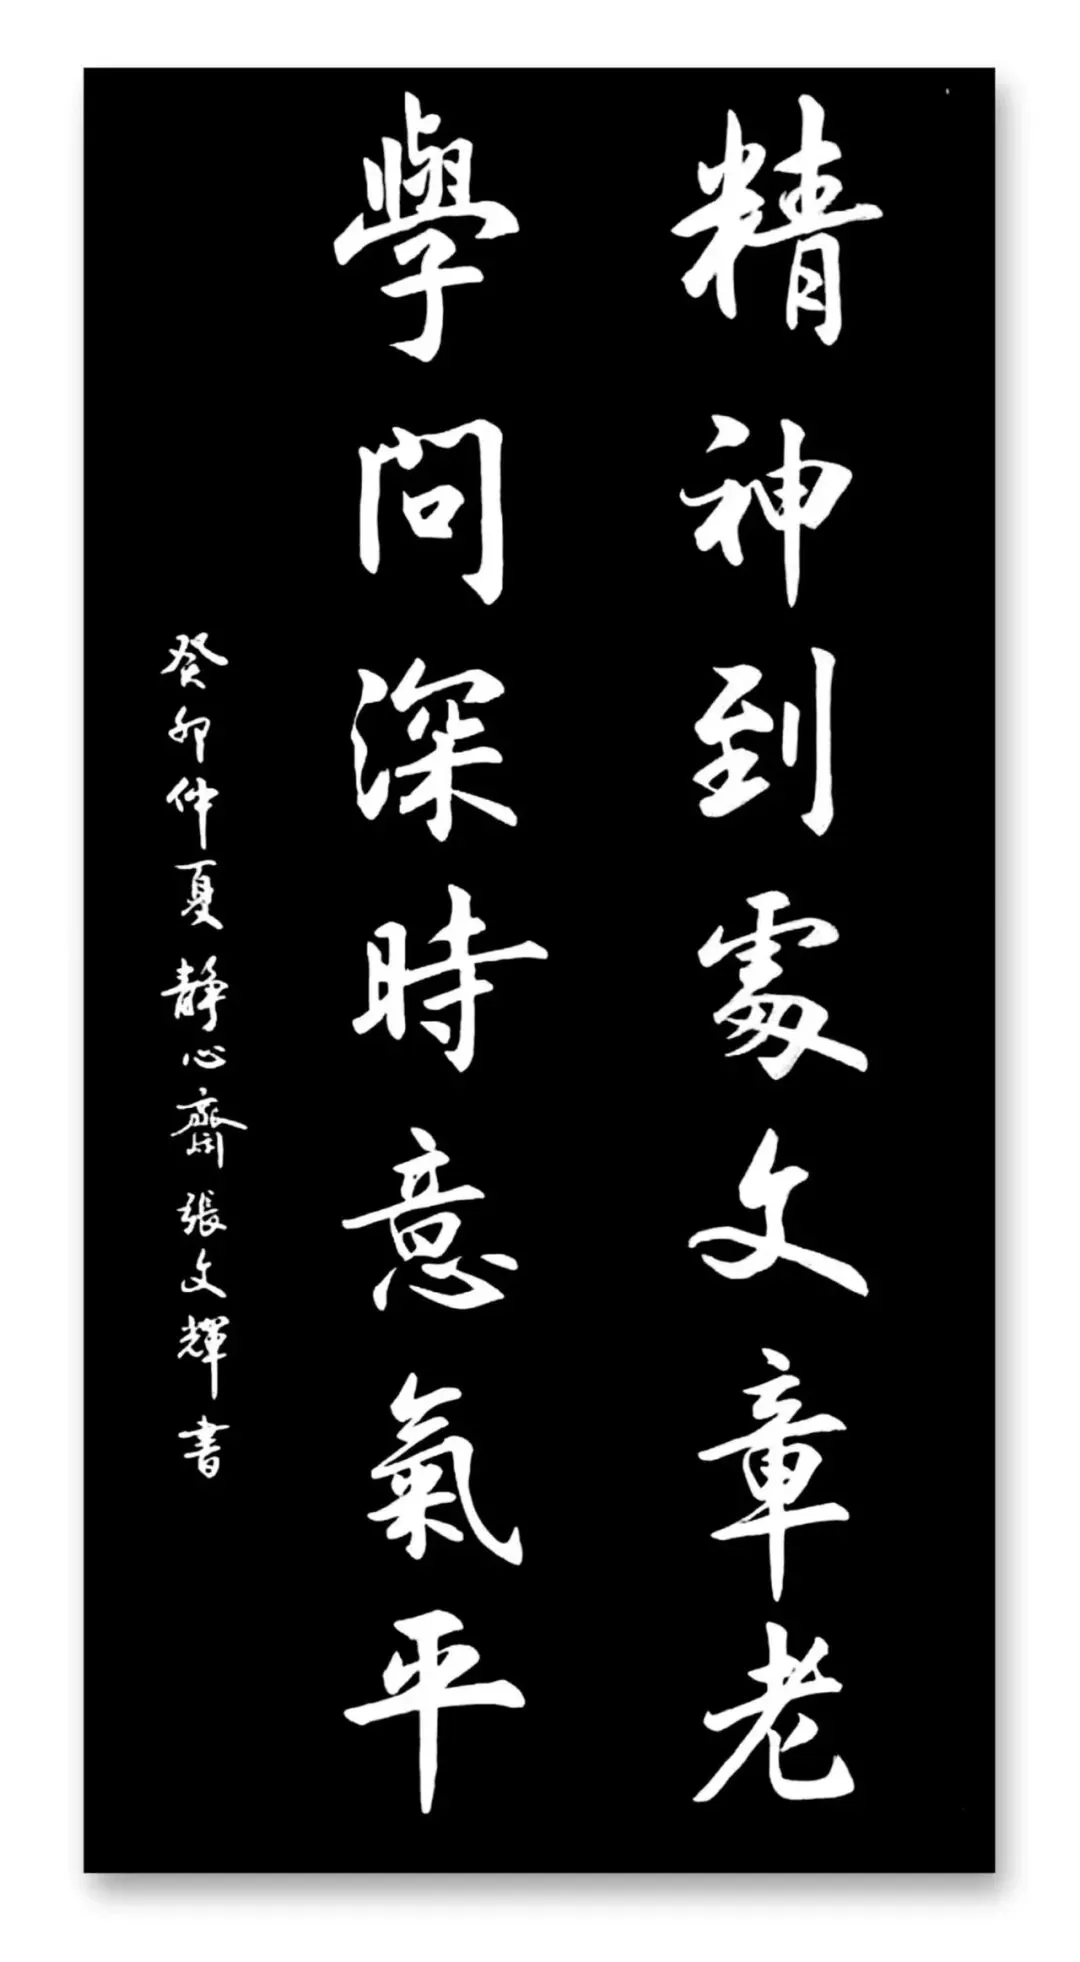 精神到處文章老
學問深時意氣平
癸卯仲夏靜心齋張文輝書